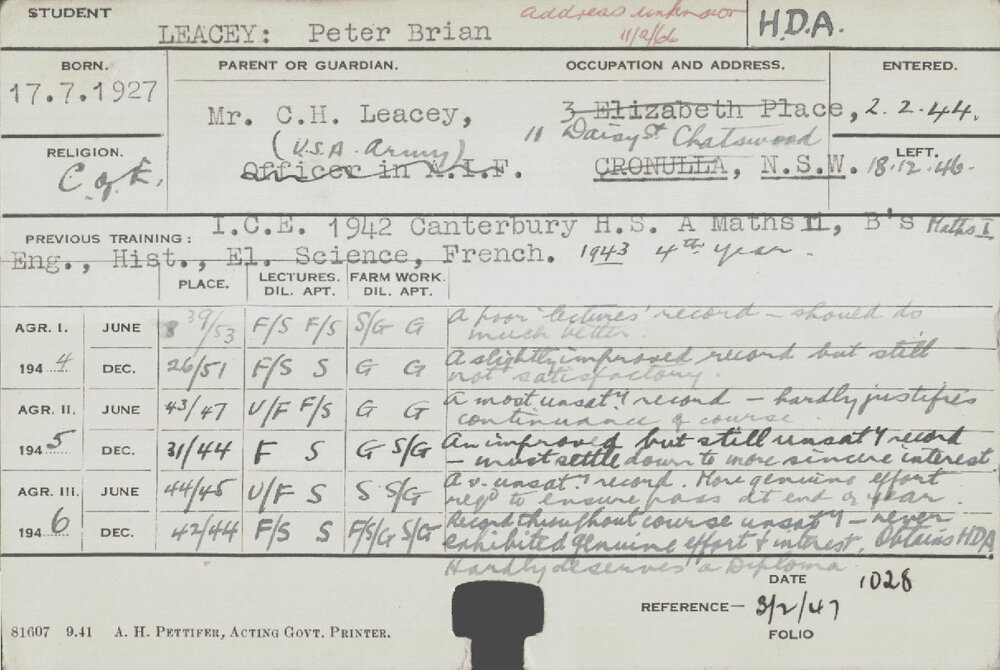 STUDENT
LEACEY: Peter Brian
address unknown
11/2/66
H.D.A.
BORN.
17.7.1927
PARENT OR GUARDIAN.
OCCUPATION AND ADDRESS.
ENTERED.
Mr. C.H. Leacey,
3 Elizabeth Place,
2.2.44.
(U.S.A. Army)
11 Daisy St. Chatswood
RELIGION.
C of E.
Officer in A.I.F.
CRONULLA, N.S.W.
LEFT.
18.12.46.
PREVIOUS TRAINING:
I.C.E. 1942 Canterbury H.S. A Maths II, B's Maths I
Eng., Hist., El. Science, French. 1943 4th year.
PLACE.
LECTURES.
DIL. APT.
FARM WORK.
DIL. APT.
AGR. I. JUNE 39/53 F/S F/S S/G G A poor lectures' record - should do
much better.
1944 DEC. 26/51 F/S S G G A slightly improved record but still
not satisfactory.
AGR. II. JUNE 43/47 U/F F/S G G A most unsaty record - hardly justifies
continuance of course.
1945 DEC. 31/44 F S G S/G An improved but still unsaty record
- must settle down to more sincere interest.
AGR. III. JUNE 44/45 U/F S S S/G A v. unsaty record. More genuine effort
reqd to ensure pass at end of year.
1946 DEC. 42/44 F/S S F/S/G S/G Record throughout course unsaty - never
exhibited genuine effort & interest. Obtains HDA
Hardly deserves a Diploma.
DATE 1028
REFERENCE- 3/2/47
FOLIO
81607 9.41 A. H. PETTIFER, ACTING GOVT. PRINTER.